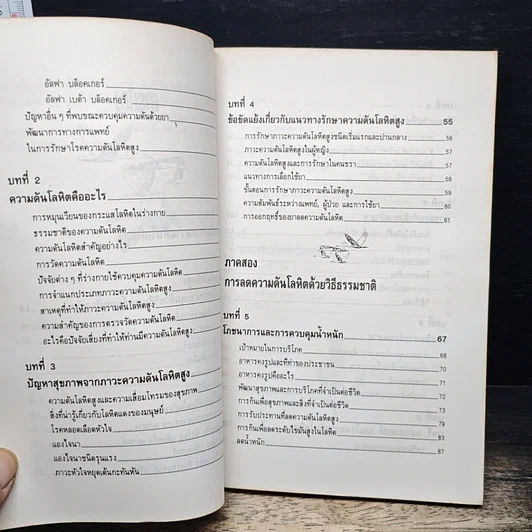 อัลฟา บล็อคเกอร์
อัลฟา เบต้า บล็อคเกอร์
ปัญหาอื่น ๆ ที่พบขณะควบคุมความดันด้วยยา
พัฒนาการทางการแพทย์
ในการรักษาโรคความดันโลหิตสูง
บทที่ 2
ความดันโลหิตคืออะไร
การหมุนเวียนของกระแสโลหิตในร่างกาย
ธรรมชาติของความดันโลหิต
ความดันโลหิตสำคัญอย่างไร
การวัดความดันโลหิต
ปัจจัยต่าง ๆ ที่ร่างกายใช้ควบคุมความดันโลหิต
การจำแนกประเภทภาวะความดันโลหิตสูง
สาเหตุที่ทำให้ภาวะความดันโลหิตสูง
ความสำคัญของการตรวจวัดความดันโลหิต
อะไรคือปัจจัยเสี่ยงที่ทำให้ท่านมีความดันโลหิตสูง
บทที่ 3
ปัญหาสุขภาพจากภาวะความดันโลหิตสูง
ความดันโลหิตสูงและความเสื่อมโทรมของสุขภาพ
สิ่งที่น่ารู้เกี่ยวกับโลหิตแดงของมนุษย์
โรคหลอดเลือดหัวใจ
แองไจนา
แองไจนาชนิดรุนแรง
ภาวะหัวใจหยุดเต้นกะทันหัน
บทที่ 4
ข้อขัดแย้งเกี่ยวกับแนวทางรักษาความดันโลหิตสูง 55
การรักษาภาวะความดันโลหิตสูงชนิดเริ่มแรกและปานกลาง 56
ภาวะความดันโลหิตสูงในผู้หญิง 57
ความดันโลหิตสูงและการรักษาในคนชรา 57
แนวทางการเลือกใช้ยา 58
ขั้นตอนการรักษาภาวะความดันโลหิตสูง 59
ความสัมพันธ์ระหว่างแพทย์, ผู้ป่วย และการใช้ยา 60
การออกฤทธิ์ของยาลดความดันโลหิต 61
ภาคสอง
การลดความดันโลหิตด้วยวิธีธรรมชาติ
บทที่ 5
โภชนาการและการควบคุมน้ำหนัก 67
เป้าหมายในการบริโภค 68
อาหารคงรูปและที่ทำของประชาชน 70
อาหารคงรูปคืออะไร 71
พัฒนาสุขภาพและการบริโภคที่จำเป็นต่อชีวิต 72
การกินเพื่อสุขภาพและสิ่งที่จำเป็นต่อชีวิต 74
การรับประทานที่ลดความดันโลหิตสูง 79
การกินเพื่อลดระดับไขมันสูงในโลหิต 83
ลดน้ำหนัก 87